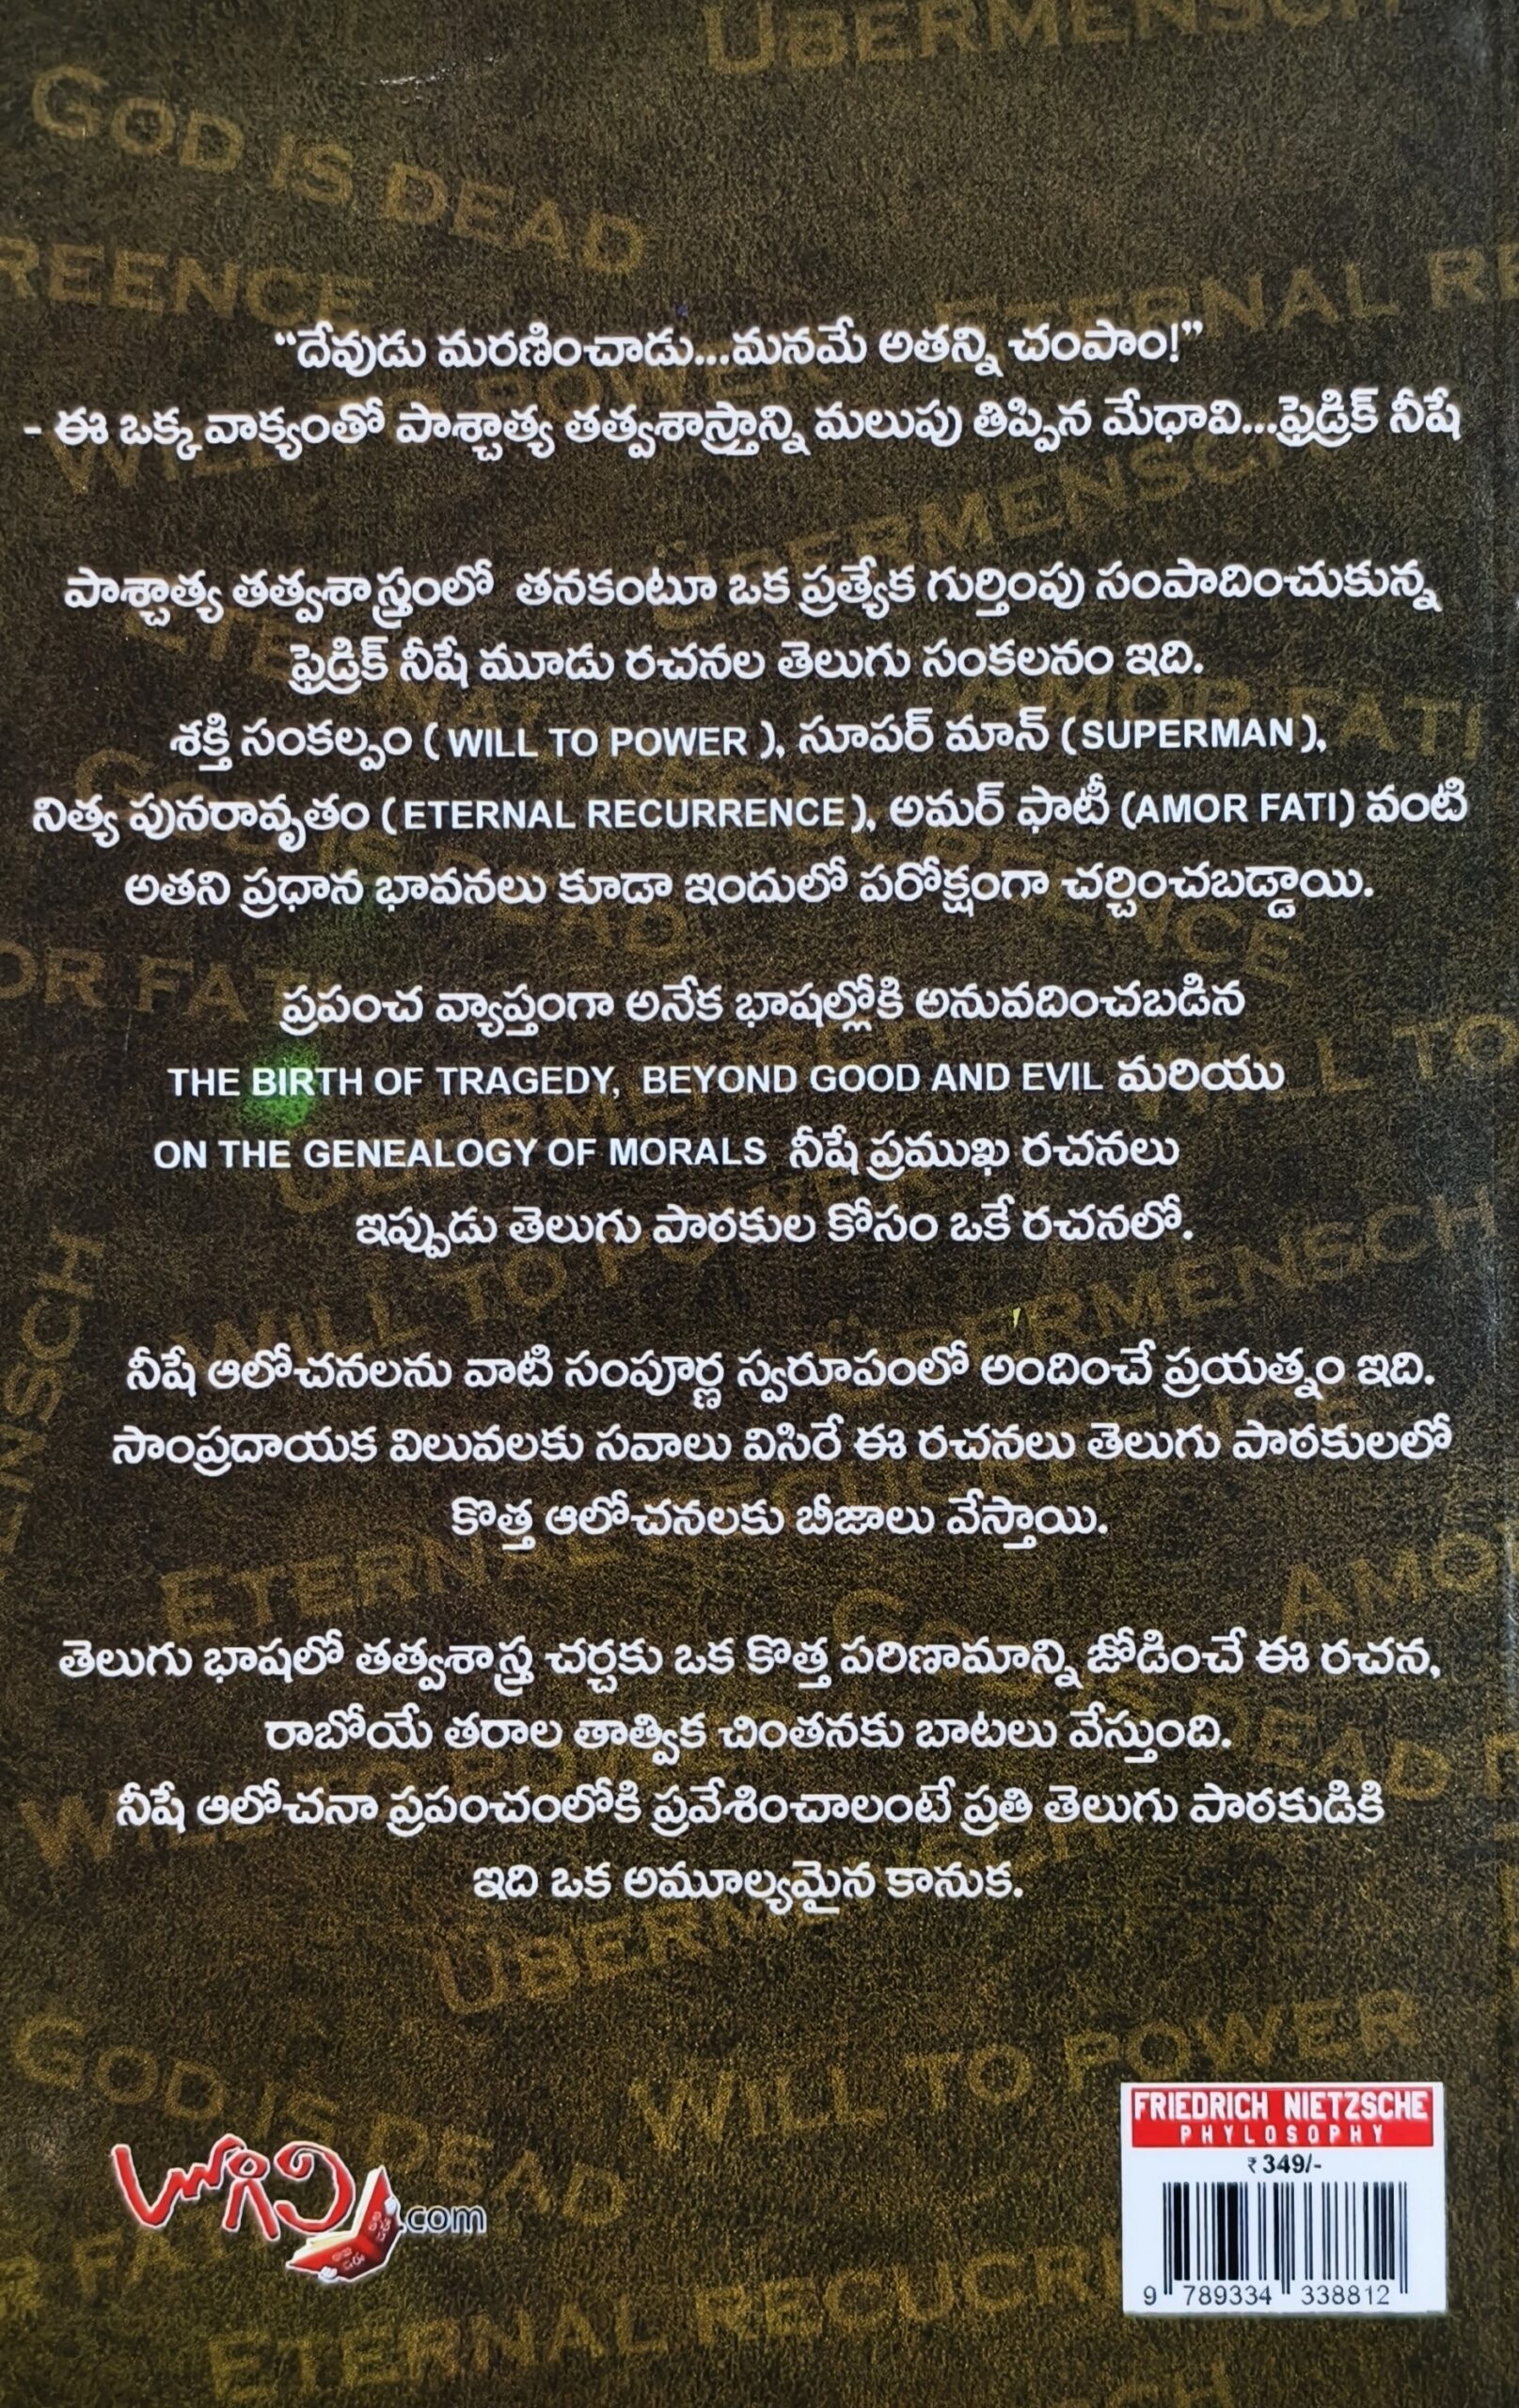 ÜBERMENSCH
GOD IS DEAD
“దేవుడు మరణించాడు...మనమే అతన్ని చంపాం!”
- ఈ ఒక్క వాక్యంతో పాశ్చాత్య తత్వశాస్త్రాన్ని మలుపు తిప్పిన మేధావి...ఫ్రెడ్రిక్ నీషే
పాశ్చాత్య తత్వశాస్త్రంలో తనకంటూ ఒక ప్రత్యేక గుర్తింపు సంపాదించుకున్న
ఫ్రెడ్రిక్ నీషే మూడు రచనల తెలుగు సంకలనం ఇది.
శక్తి సంకల్పం ( WILL TO POWER ), సూపర్ మాన్ (SUPERMAN ),
నిత్య పునరావృతం ( ETERNAL RECURRENCE ), అమర్ ఫాటీ (AMOR FATI ) వంటి
అతని ప్రధాన భావనలు కూడా ఇందులో పరోక్షంగా చర్చించబడ్డాయి.
ప్రపంచ వ్యాప్తంగా అనేక భాషల్లోకి అనువదించబడిన
THE BIRTH OF TRAGEDY, BEYOND GOOD AND EVIL మరియు
ON THE GENEALOGY OF MORALS నీషే ప్రముఖ రచనలు
ఇప్పుడు తెలుగు పాఠకుల కోసం ఒకే రచనలో.
నీషే ఆలోచనలను వాటి సంపూర్ణ స్వరూపంలో అందించే ప్రయత్నం ఇది.
సాంప్రదాయక విలువలకు సవాలు విసిరే ఈ రచనలు తెలుగు పాఠకులలో
కొత్త ఆలోచనలకు బీజాలు వేస్తాయి.
తెలుగు భాషలో తత్వశాస్త్ర చర్చకు ఒక కొత్త పరిణామాన్ని జోడించే ఈ రచన,
రాబోయే తరాల తాత్విక చింతనకు బాటలు వేస్తుంది.
నీషే ఆలోచనా ప్రపంచంలోకి ప్రవేశించాలంటే ప్రతి తెలుగు పాఠకుడికి
ఇది ఒక అమూల్యమైన కానుక.
GOD IS DEAD
WILL TO POWER
FRIEDRICH NIETZSCHE
PHYLOSOPHY
₹ 349/-
.com
9 789334 338812